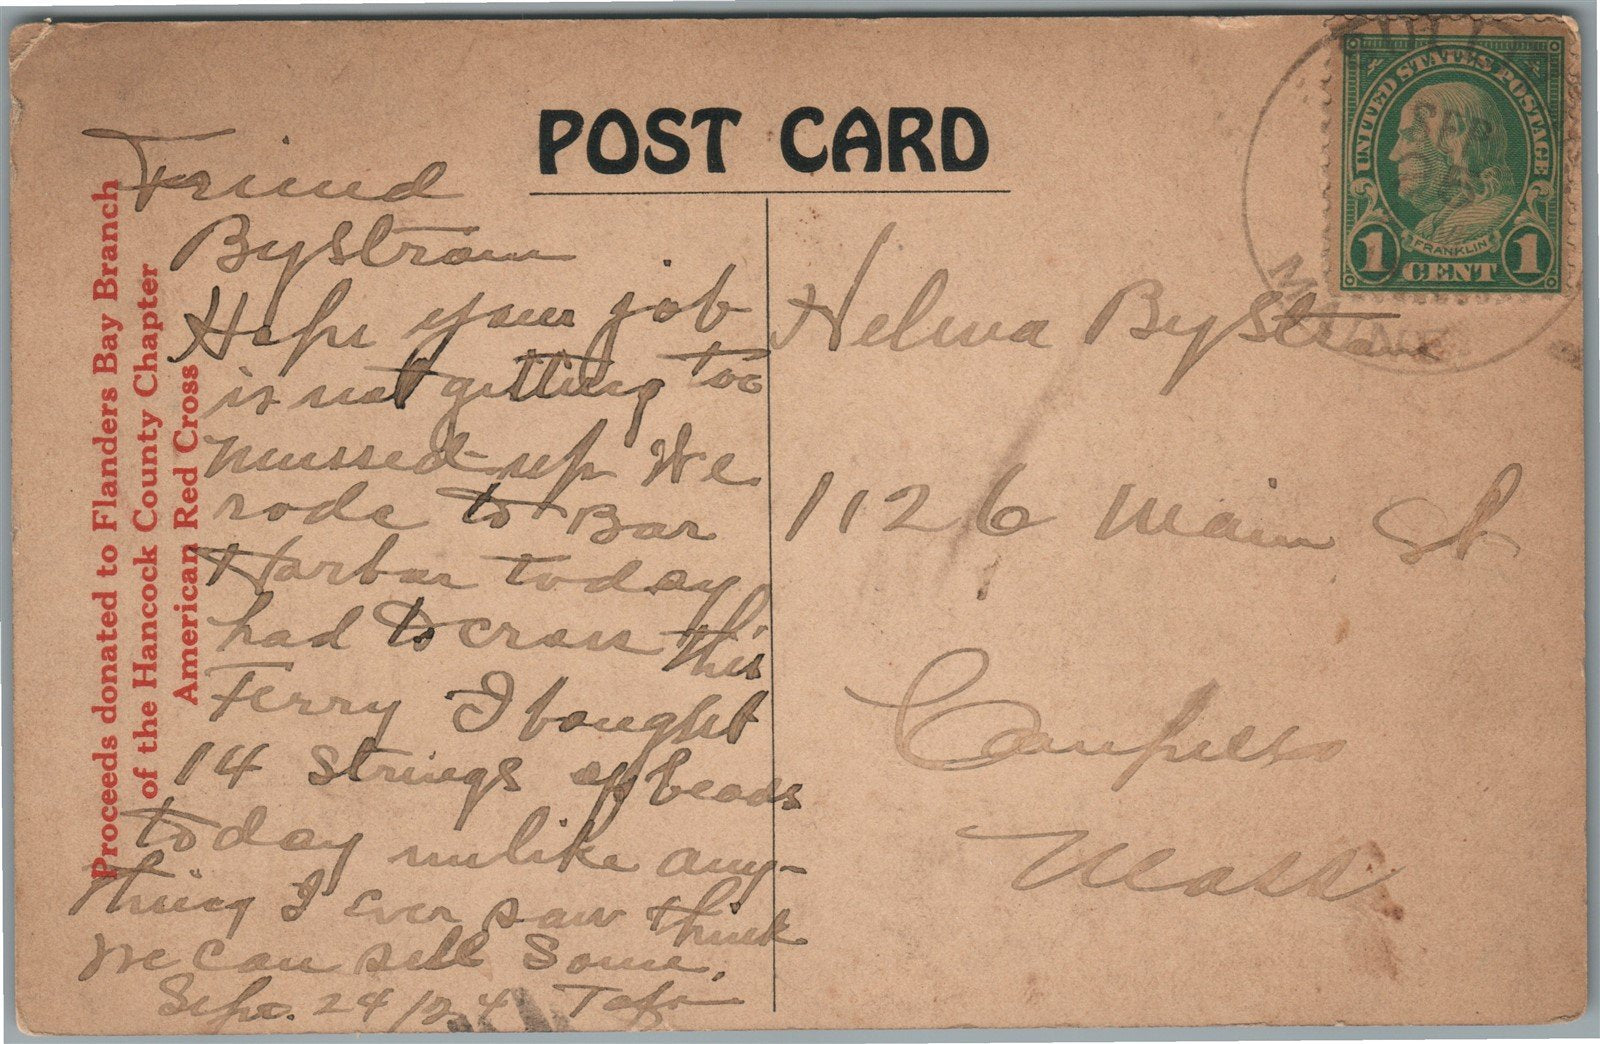 POST CARD
Proceeds donated to Flanders Bay Branch
of the Hancock County Chapter
American Red Cross
Friend
Bystrom
Hope your job
is not getting too
mussed up We
rode to Bar
Harbar today
had to cross this
Ferry I bought
14 strings of beads
today unlike any-
thing I ever saw think
we can sell some.
Sept. 24/24
Helma Bystrom
1126 Main St
Campello
Mass
UNITED STATES POSTAGE
FRANKLIN
1 CENT 1
SEP
MAINE